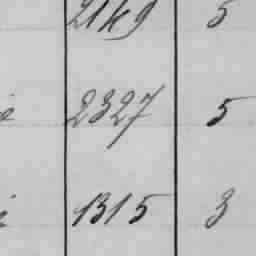 5
2327 5
1315 3